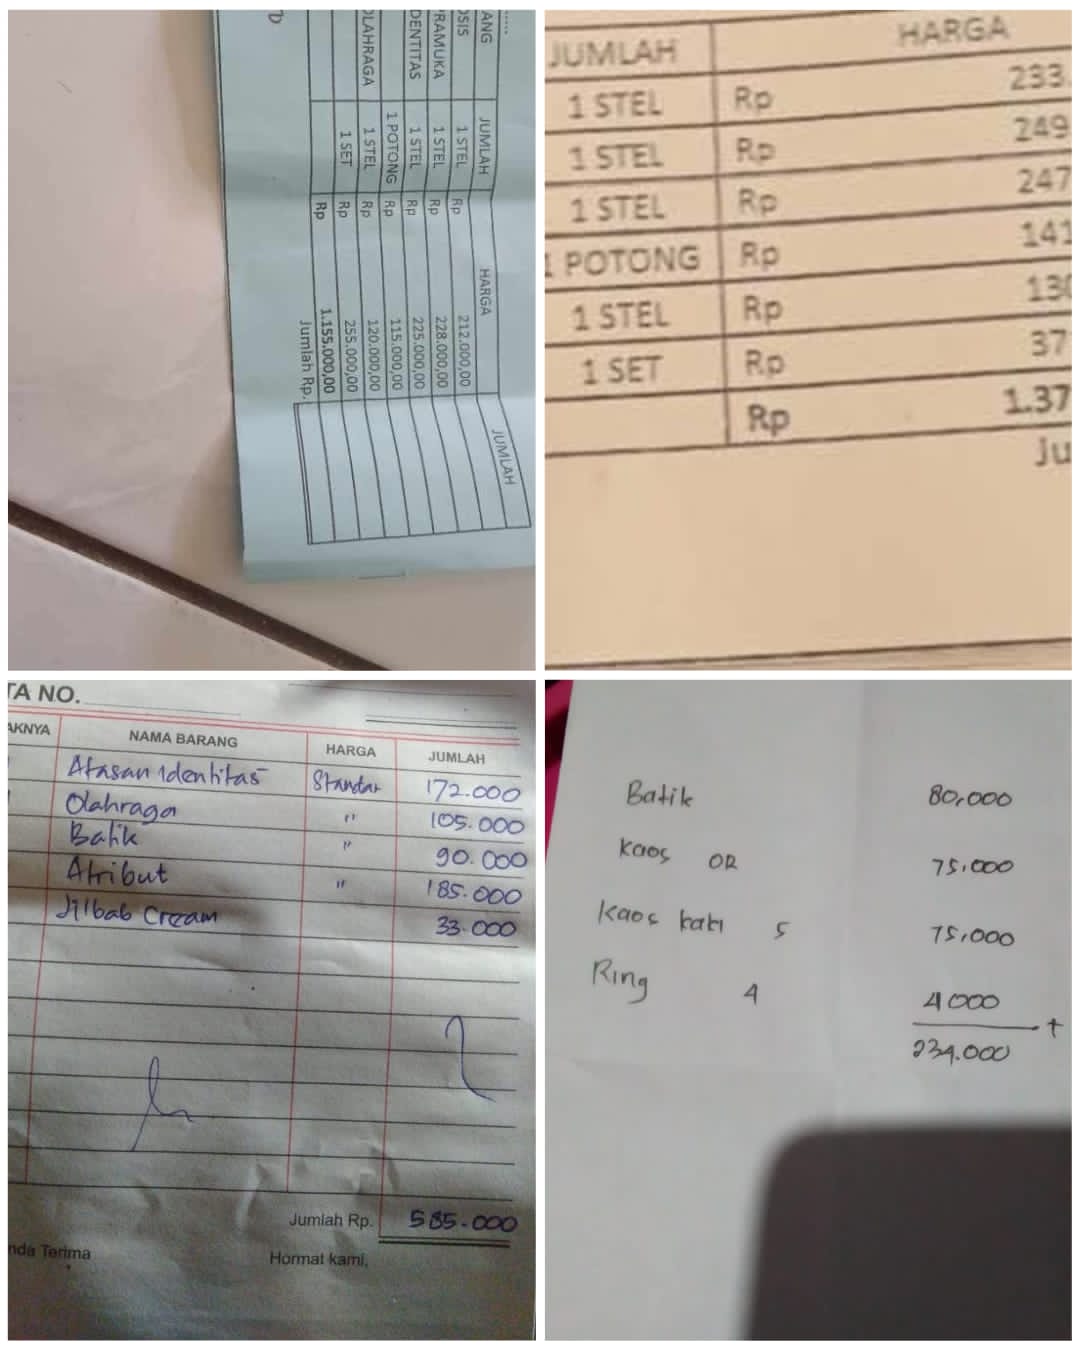 .....
ANG JUMLAH HARGA JUMLAH
OSIS 1 STEL Rp 212.000,00
PRAMUKA 1 STEL Rp 228.000,00
IDENTITAS 1 STEL Rp 225.000,00
1 POTONG Rp 115.000,00
OLAHRAGA 1 STEL Rp 120.000,00
1 SET Rp 255.000,00
Rp 1.155.000,00
Jumlah Rp.
JUMLAH HARGA
1 STEL Rp 233.
1 STEL Rp 249
1 STEL Rp 247
1 POTONG Rp 141
1 STEL Rp 130
1 SET Rp 37
Rp 1.37
Ju
TA NO.
AKNYA NAMA BARANG HARGA JUMLAH
Atasan identitas Standar 172.000
Olahraga " 105.000
Batik " 90.000
Atribut " 185.000
Jilbab Cream 33.000
Jumlah Rp. 585.000
nda Terima Hormat kami,
Batik 80,000
Kaos OR 75,000
Kaos kaki 5 75,000
Ring 4 4000
+
234.000